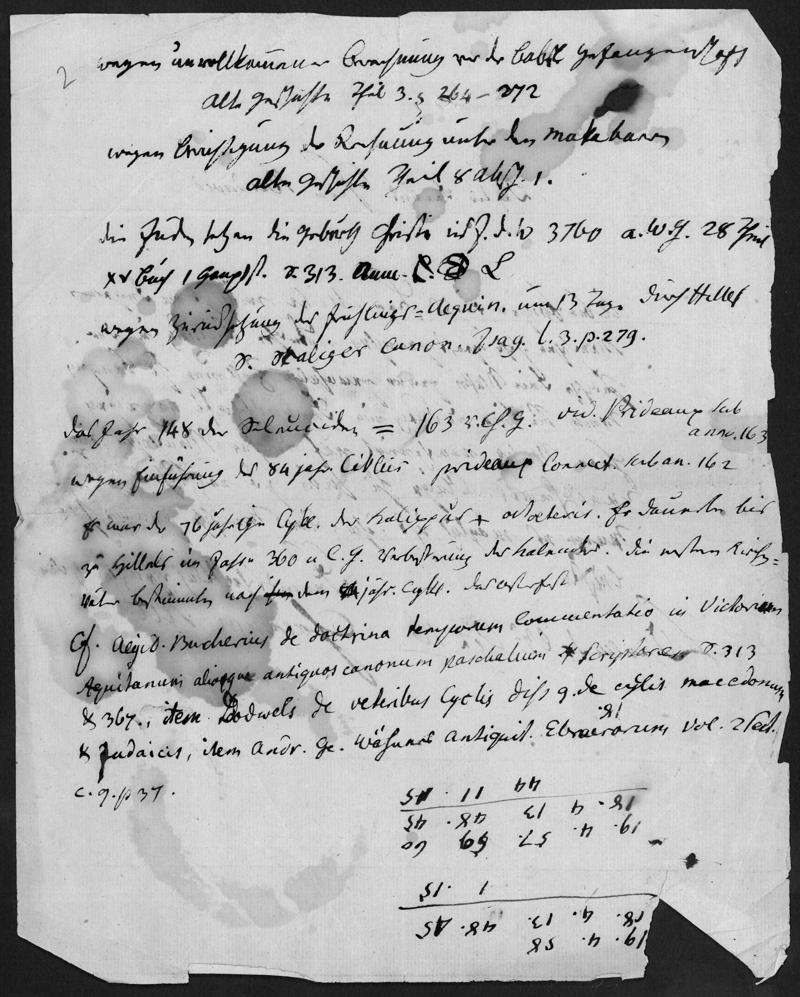 2
wegen unvollkommener Berechnung vor der Babyl. Gefangenschafft
alte Geschichte Theil 3. § 264 – 272
wegen Berichtigung der Rechnung unter den Makabaern
alte Geschichte Theil 8 Absch. 1.
die Juden setzen die Geburth Christi ins J. d. W 3760 a. W. G. 28 Theil
XV Buch 1 Haupst. S. 313. Anm. L
wegen Zurücksetzung des Frühlings=Aequin. um 13 Tage durch Hillel
S. Skaliger Canon. Isag. l. 3. p. 279.
das Jahr 148 der Seleuciden = 163 v. Ch. G. vid. Prideaux sub
anno. 163
wegen Einführung des 84 jahr. Ciklus. prideaux Connect. sub an. 162
Es war der 76 jährige Cykl. des Kalippus + octaeteris. Er dauerte bis
zu Hillels im Jahr 360 n C. G. Verbesserung des Kalenders. die ersten Kirch=
Väter bestimmten nach dem 84 jähr. Cykl. das osterfest
Cf. Aegid. Bucherius de doctrina temporum Commentatio in Victorium
Aquitanum aliosque antiquos canonum paschalium Scriptores S. 313
& 367., item Dodwels de veteribus Cyclis diss 9. de cyclis macedonum
& Judaicis, item Andr. Ge. Wähners Antiquit. Ebraeorum Vol. 2 Sect.
c. 9. p 37.
19. 4. 57. 59 60
18. 4 13 48. 45
44 11. 15
19. 4. 58
18. 4. 13. 48. 45
1 . 15